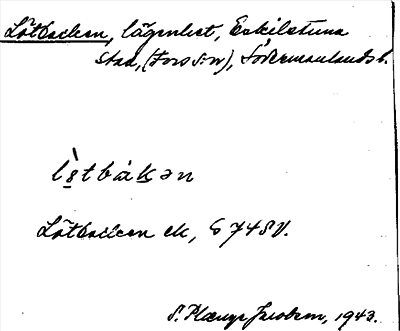 Lötbacken, lägenhet, Eskilstuna
stad, (Fors sn), Södermanlands l.
lö̀tbàkən
Lötbacken ek, G 748V.
S. Plænge Jacobson, 1943.